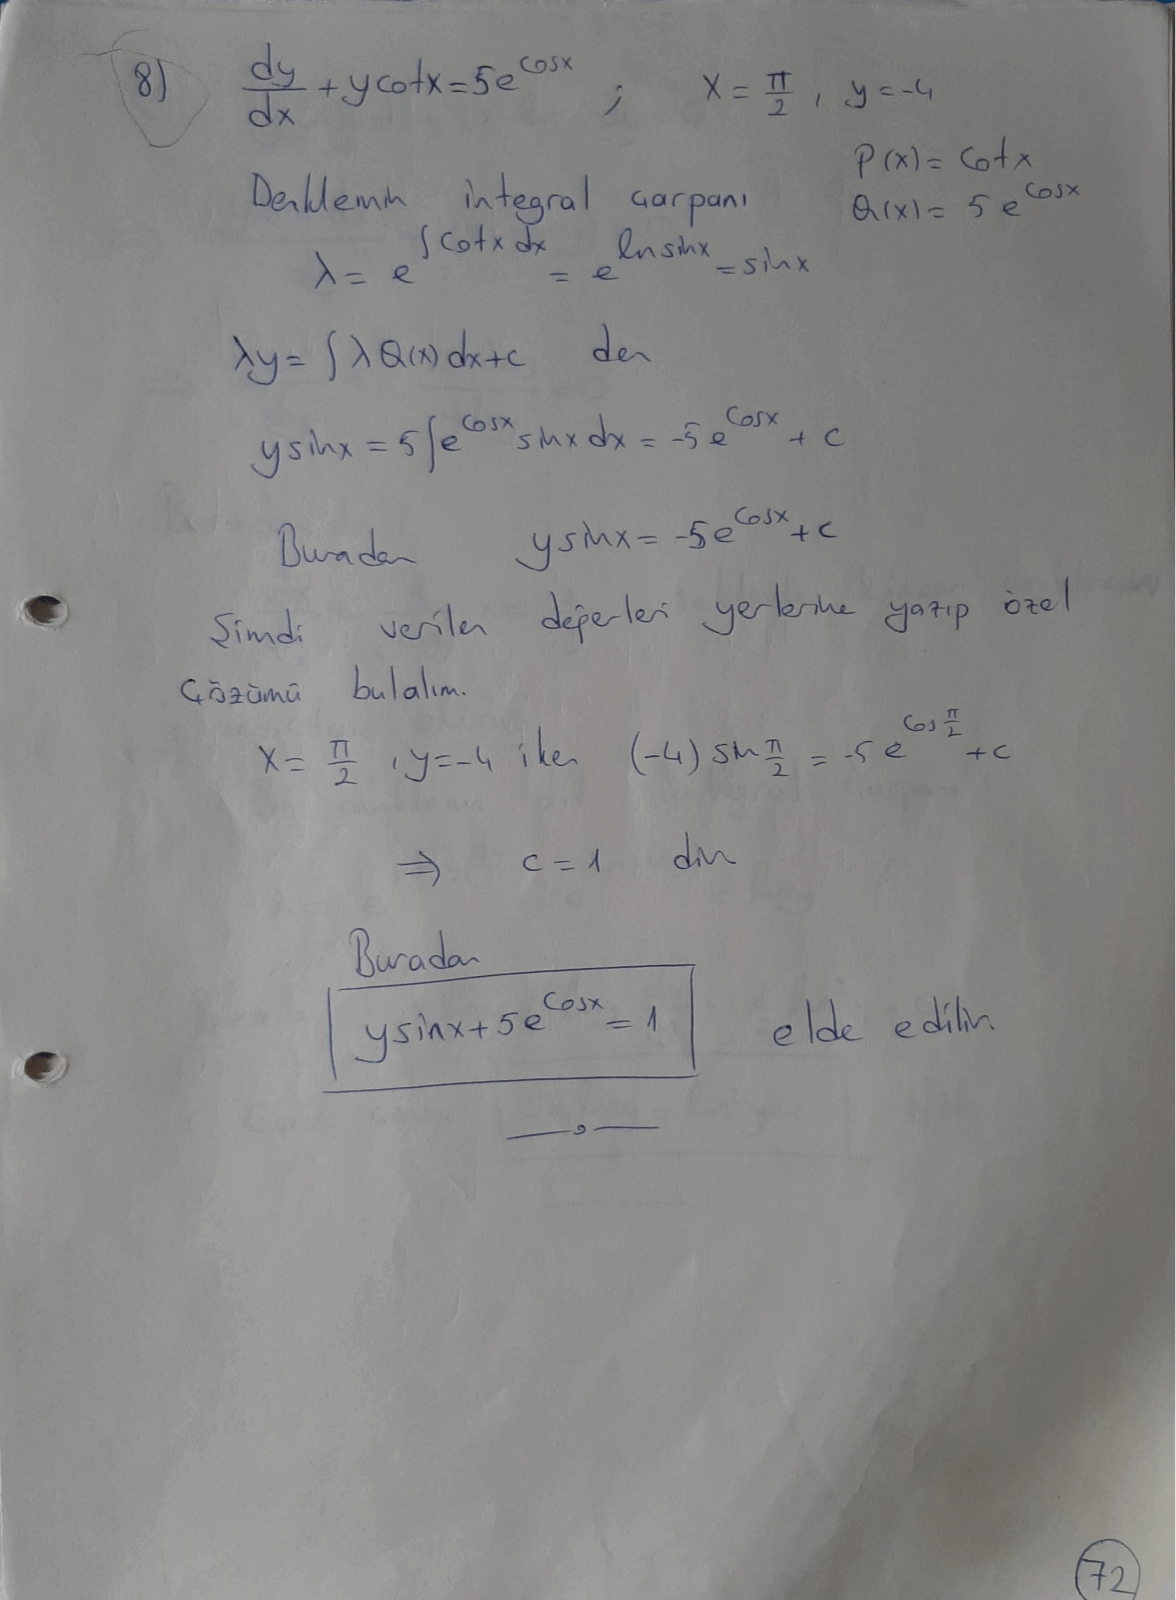 8) dy/dx + y cotx = 5e^cosx ; x = π/2 , y = -4
P(x) = cotx
Denklemin integral çarpanı Q(x) = 5e^cosx
λ = e^∫cotx dx = e^lnsinx = sinx
λy = ∫λQ(x)dx+c den
ysinx = 5∫e^cosx sinx dx = -5e^cosx + c
Buradan ysinx = -5e^cosx + c
Şimdi verilen değerleri yerlerine yazıp özel
çözümü bulalım.
x = π/2 , y = -4 iken (-4) sin π/2 = -5e^cos π/2 + c
⇒ c = 1 dir
Buradan
ysinx + 5e^cosx = 1 elde edilir.
72